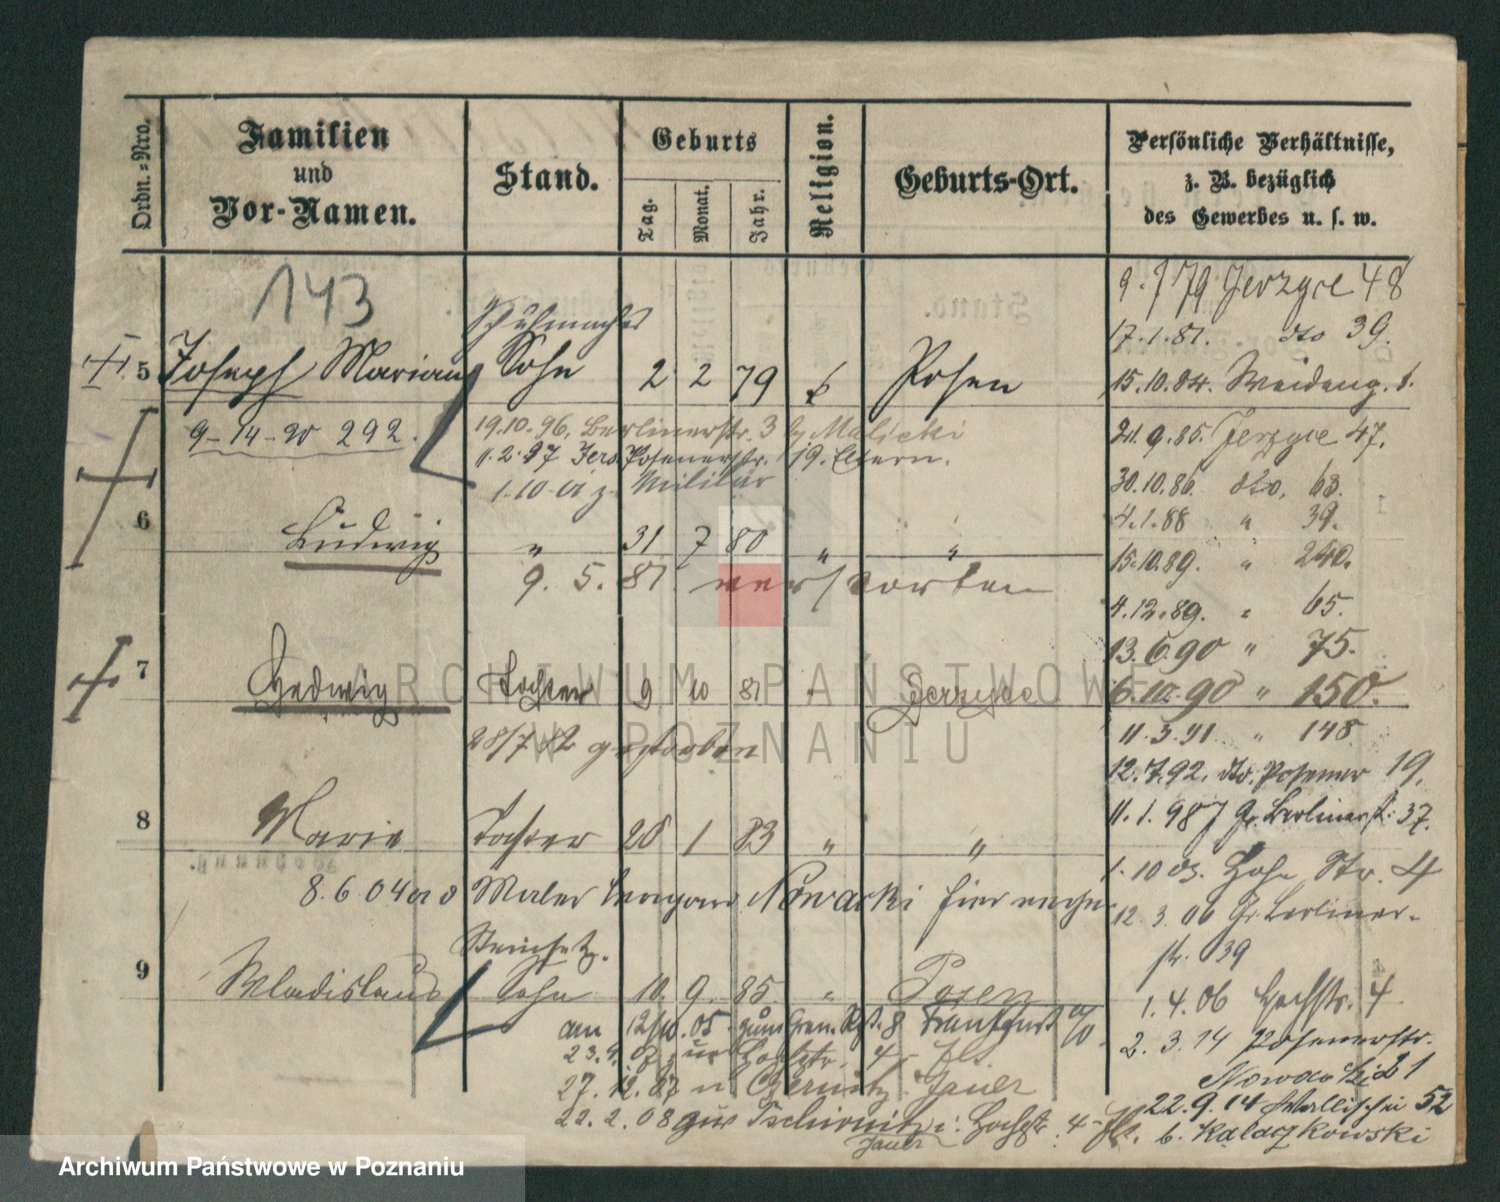 Ordn.=Nro.
Familien
und
Vor-Namen.
Stand.
Geburts
Tag.
Monat.
Jahr.
Religion.
Geburts-Ort.
Persönliche Verhältnisse,
z. B. bezüglich
des Gewerbes u. s. w.
143
9. 79 Jerzyce 48
17.1.81. dto 39.
Schuhmacher
5 Joseph Marian Sohn 2 2 79 k Posen
15.10.84. Weideng.
9-14-20 292.
19.10.96. Berlinerstr. 3 b. Malicki
21.9.85. Jerzyce 47.
11.2.97 Jers. Posenerstr. 19. Eltern.
1.10. z. Militär
30.10.86. dto. 63.
4.1.88 " 39.
6 Ludwig " 31 7 80 " "
15.10.89. " 240.
9. 5. 81. verstorben
4.12.89. " 65.
13.6.90 " 75.
7 Hedwig Tochter 9 10 81 " Jerzyce
6.12.90 " 150.
28/7 82 gestorben
11.3.91 " 148
12.7.92. dto. Posener 19.
8 Marie Tochter 28 1 83 " "
11.1.98 Gr. Berlinerst. 37.
1.10 03. Hohe Str. 4
8.6.04 Maler Nowacki hier
12.3.06 Gr. Berliner-
str. 39
Steinsetz.
9 Wladislaus Sohn 10. 9. 85. " Posen
1.4.06 Hochstr. 4
am 12/10.05. zum Gren. Rgt. 8 Frankfurt a/O.
2.3.14 Posenerstr.
27.12.07 n Czernitz Jauer
Nowacki
22.9.14 Wallischei 52
22.2.08 aus Tschirnitz Hochstr. 4
b. Kalaczkowski
Jauer
ARCHIWUM PAŃSTWOWE
W POZNANIU
Archiwum Państwowe w Poznaniu